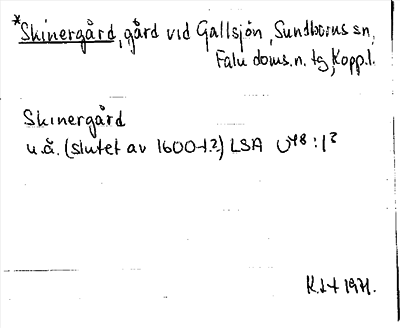 *Skinergård, gård vid Gallsjön, Sundborns sn,
Falu doms.n. tg, Kopp.l.
Skinergård
u.å. (slutet av 1600-t.?) LSA U48:1
1971.